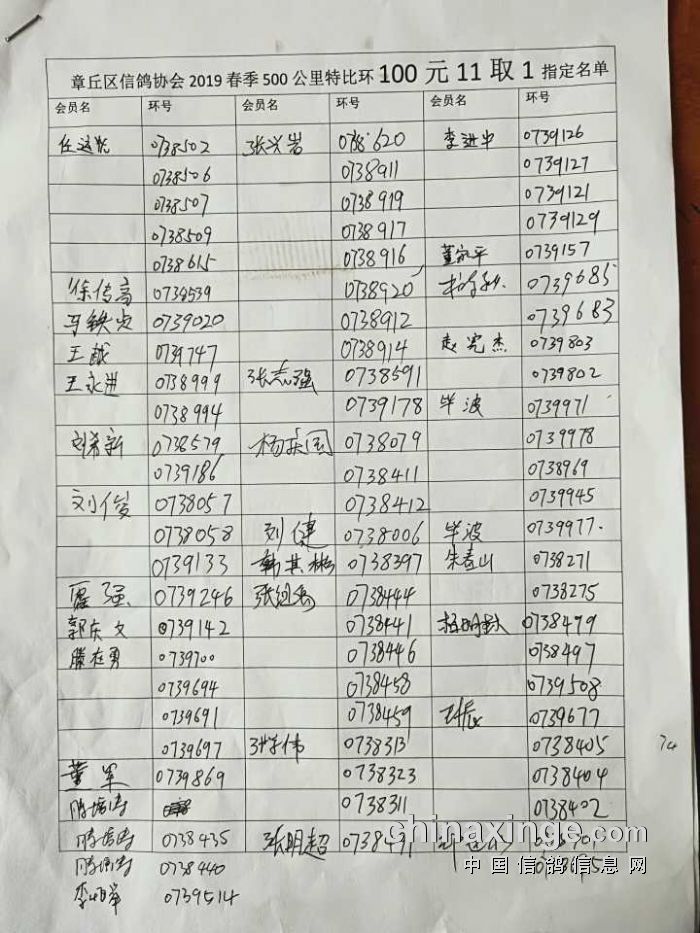 章丘区信鸽协会2019春季500公里特比环100元11取1指定名单
会员名 环号 会员名 环号 会员名 环号
0738502 张兴岩 0738620 李进中 0739126
0738506 0738911 0739127
0738507 0738919 0739121
0738509 0738917 0739129
0738615 0738916 董家平 0739157
徐传高 0739539 0738920 0739685
马铁成 0739020 0738912 0739683
王越 0739747 0738914 赵宪杰 0739803
王永进 0738999 张志强 0738591 0739802
0738994 0739178 毕波 0739971
刘新 0738579 杨庆国 0738079 0739978
0739186 0738411 0738969
刘俊 0738057 0738412 0739945
0738058 刘健 0738006 毕波 0739977
0739133 韩其彬 0738397 朱春山 0738271
强 0739246 0738444 0738275
郭庆文 0739142 0738441 0738479
滕在勇 0739700 0738446 0738497
0739694 0738458 0739508
0739691 0738459 0739677
0739697 伟 0738313 0738405
董军 0739869 0738323 0738404
0738311 0738402
0738435 张明超
0738440
0739514
74
chinaxinge.com
中国信鸽信息网